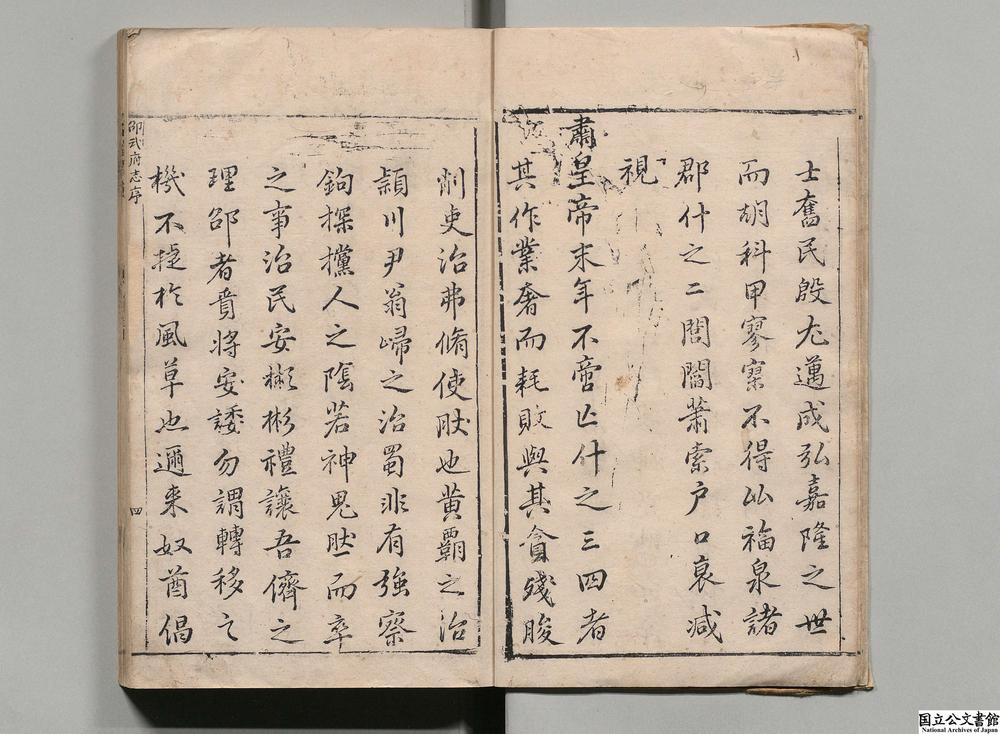 士奮民殷尤邁成弘嘉隆之世
而胡科甲寥寥不得比福泉諸
郡什之二閭閻蕭索戶口衰減
視
肅皇帝末年不啻亡什之三四者
其作業奢而耗敗與其貪殘朘
削吏治弗脩使肰也黃霸之治
潁川尹翁歸之治蜀非有強察
鉤探攩人之陰若神鬼肰而卒
之事治民安彬彬禮讓吾儕之
理邵者賁將安諉勿謂轉移之
機不捷於風草也邇來奴酋倡
邵武府志序
四
国立公文書館
National Archives of Japan